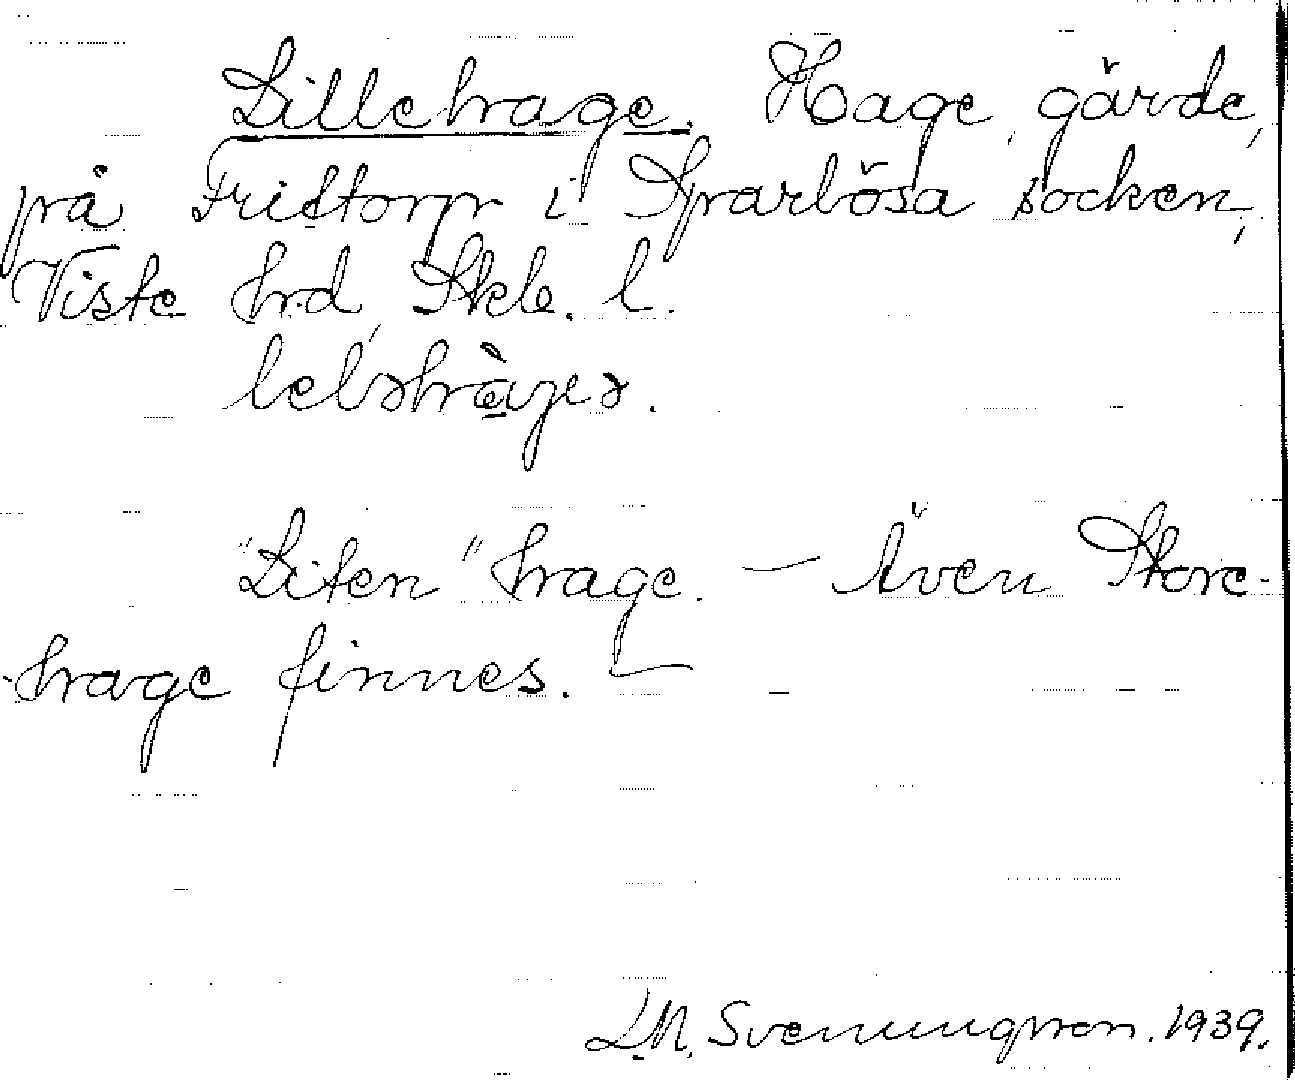 Lillehage. Hage, gärde,
på Fristorp i Sparlösa socken,
Viste hrd, Skb. l.
"Liten" hage. — Även Store-
-hage finnes. —
L.M. Svenungsson. 1939.